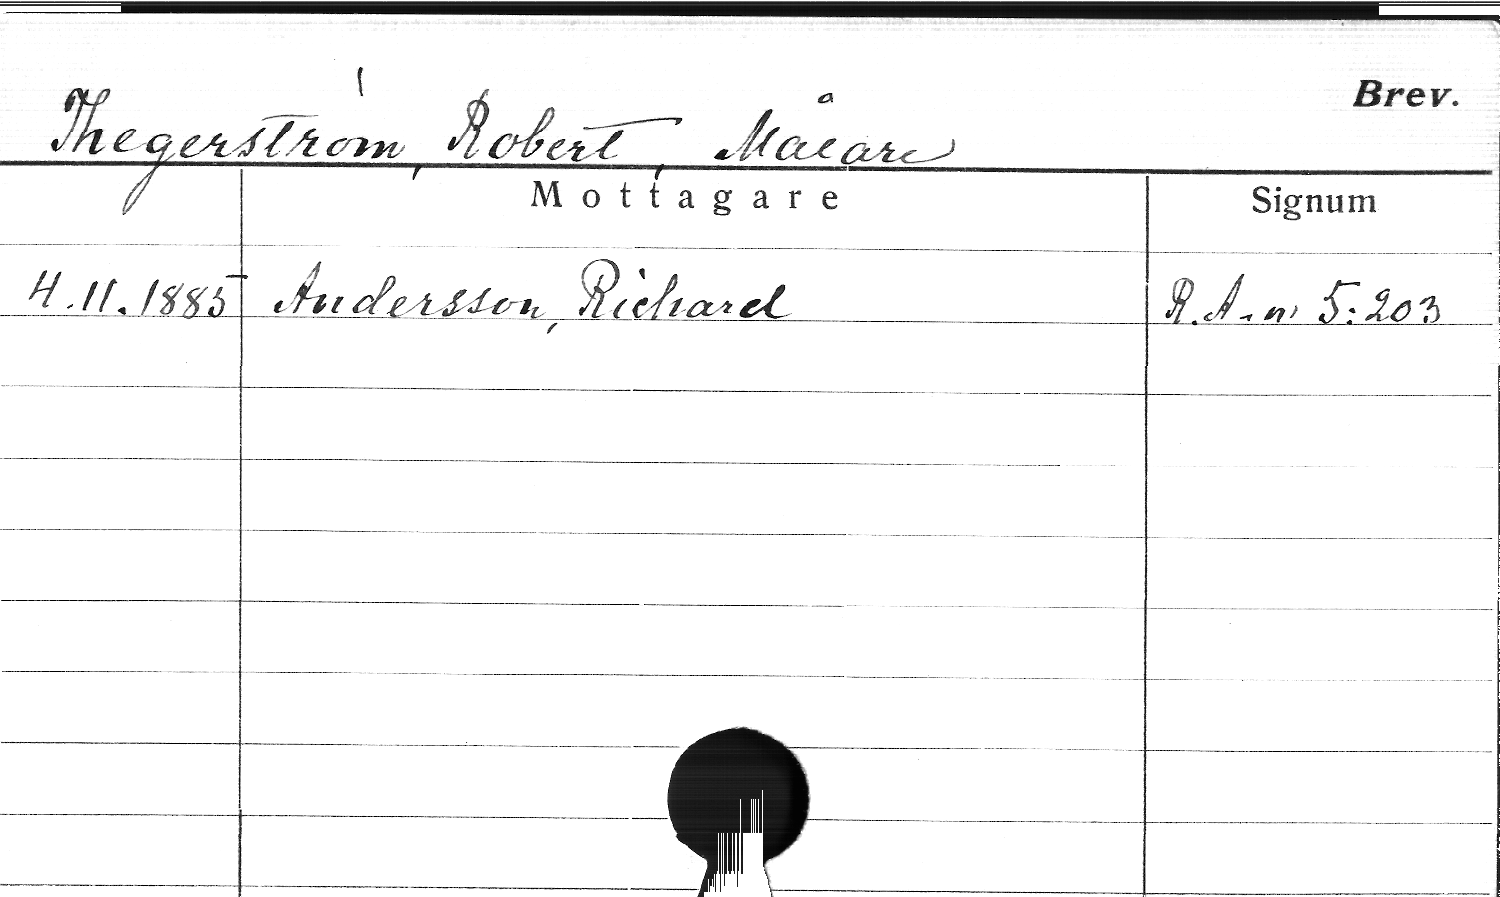 Brev.
Thegerström, Robert, Målare
Mottagare Signum
4.11.1885 Andersson, Richard R.A-n 5:203